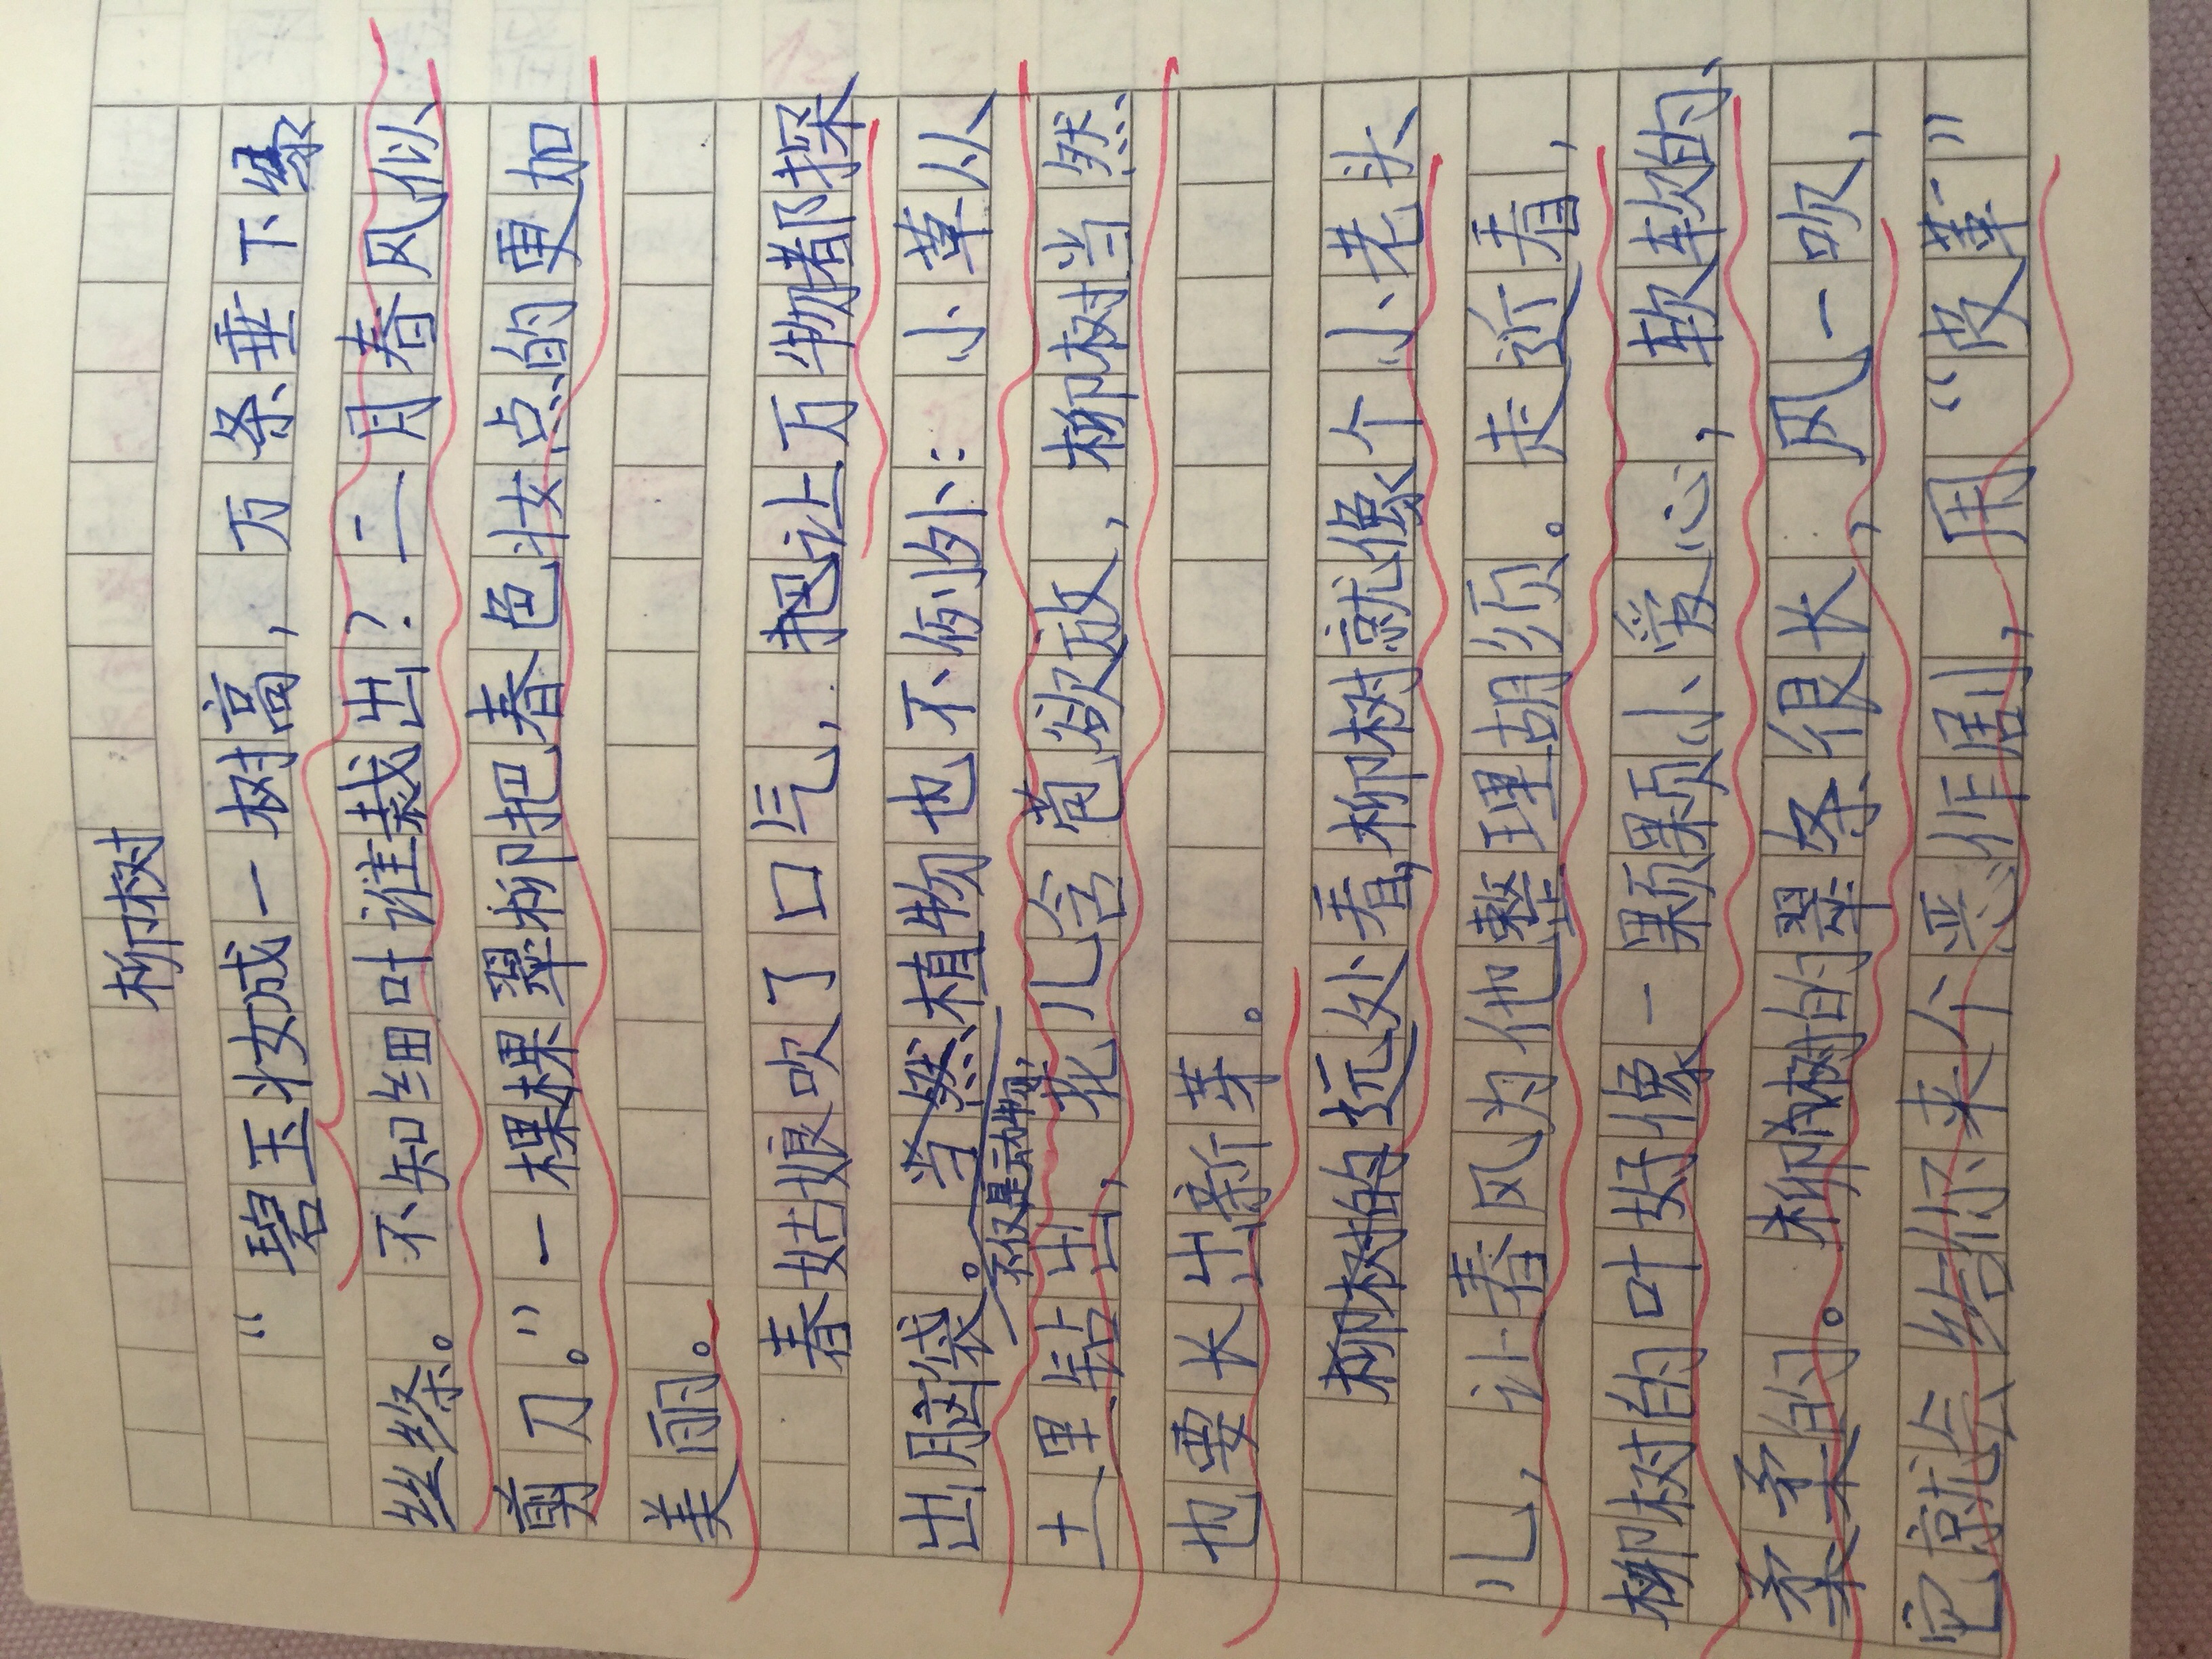 柳树
“碧玉妆成一树高,万条垂下绿
丝绦。不知细叶谁裁出?二月春风似
剪刀。”一棵棵翠柳把春色妆点的更加
美丽。
春姑娘吹了口气,把让万物都探
出脑袋。当然植物也不例外:小草从
不仅是动物,
土里钻出,花儿含苞欲放,柳树当然
也要长出新芽。
柳树的远处看,柳树就像个小老头
儿,让春风为他整理胡须。走近看,
柳树的叶好像一颗颗小爱心,软软的、
柔柔的。柳树的翠条很长,风一吹,
它就会给你来个恶作剧,用“皮革”